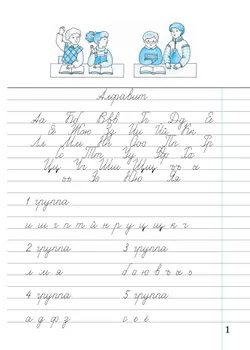 Алфавит
Аа Бб Вв Гг Дд Ее
Ёё Жж Зз Ии Йй Кк
Лл Мм Нн Оо Пп Рр
Сс Тт Уу Фф Хх
Цц Чч Шш Щщ ъ ы
ь Ээ Юю Яя
1 группа
и ш г п т й н р у ц щ к ч
2 группа 3 группа
л м я б о ю в ъ ы ь
4 группа 5 группа
а д ф з с е ё
1